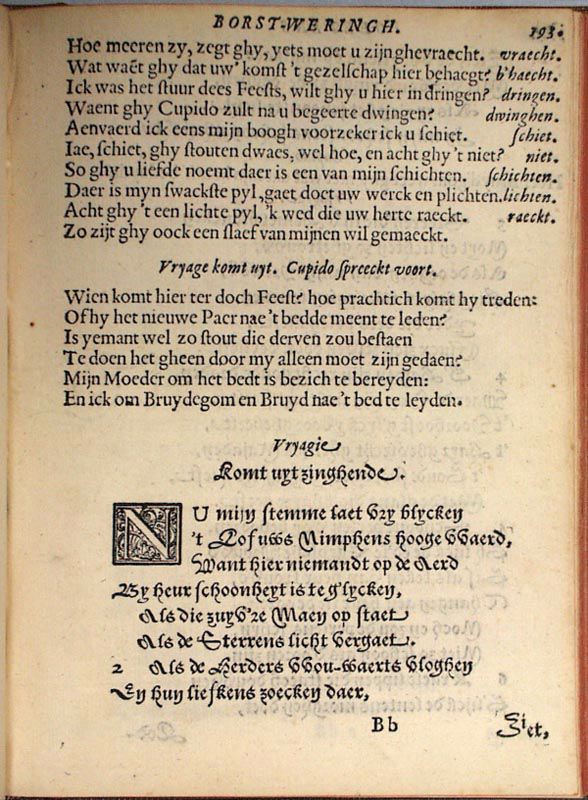 BORST-WERINGH. 193.
Hoe meeren zy, zegt ghy, yets moet u zijn ghevraecht. vraecht.
Wat waēt ghy dat uw' komst 't gezelschap hier behaegt? b'haecht.
Ick was het stuur dees Feests, wilt ghy u hier in dringen? dringen.
Waent ghy Cupido zult na u begeerte dwingen? dwinghen.
Aenvaerd ick eens mijn boogh voorzeker ick u schiet. schiet.
Iae, schiet, ghy stouten dwaes, wel hoe, en acht ghy 't niet? niet.
So ghy u liefde noemt daer is een van mijn schichten. schichten.
Daer is myn swackste pyl, gaet doet uw werck en plichten. lichten.
Acht ghy 't een lichte pyl, 'k wed die uw herte raeckt. raeckt.
Zo zijt ghy oock een slaef van mijnen wil gemaeckt.
Vryage komt uyt. Cupido spreeckt voort.
Wien komt hier ter doch Feest? hoe prachtich komt hy treden:
Of hy het nieuwe Paer nae 't bedde meent te leden?
Is yemant wel zo stout die derven zou bestaen
Te doen het gheen door my alleen moet zijn gedaen?
Mijn Moeder om het bedt is bezich te bereyden:
En ick om Bruydegom en Bruyd nae 't bed te leyden.
Vryagie
Komt uyt zinghende.
NU mijn stemme laet vry blycken
't Lof uws Nimphens hooge waerd,
Want hier niemandt op de Aerd
By heur schoonheyt is te g'lycken,
Als die zuyv're Maen op staet
Als de Sterrens licht vergaet.
2 Als de Herders wou-waerts vloghen
En hun liefkens zoecken daer,
Bb
Ziet,